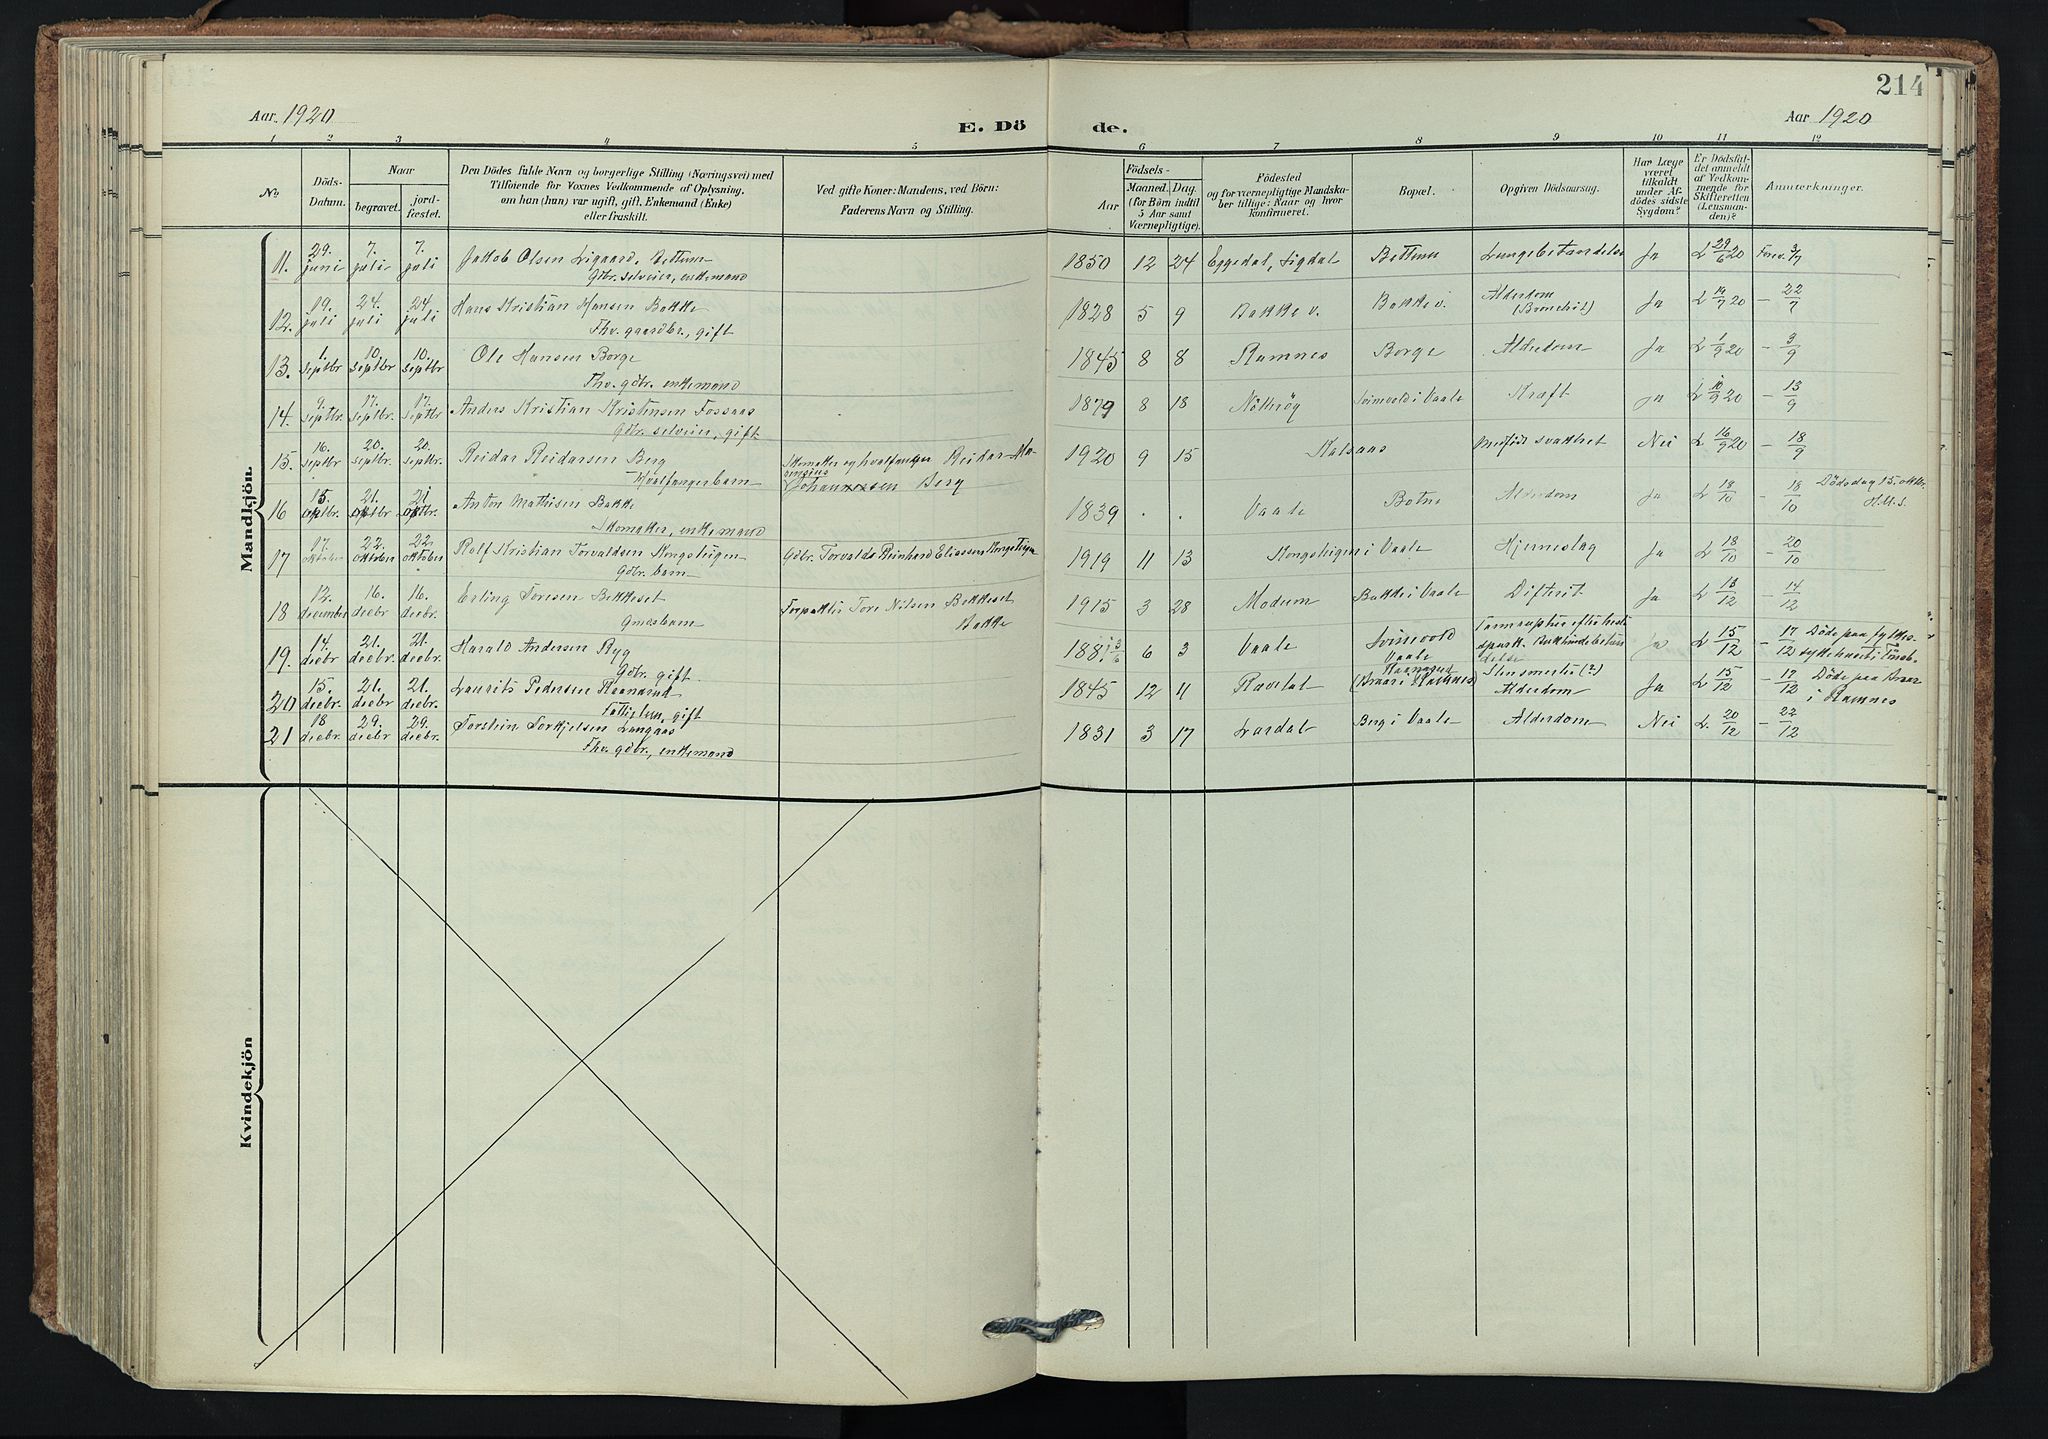 214
Aar 1920
E. Dö
de.
Aar 1920
1 2 3 4 5 6 7 8 9 10 11 12
No
Döds-Datum.
Naar
begravet.
jord-fæstet.
Den Dödes fulde Navn og borgerlige Stilling (Næringsvei) med
Tilföiende for Voxnes Vedkommende af Oplysning,
om han (hun) var ugift, gift, Enkemand (Enke)
eller fraskilt.
Ved gifte Koner: Mandens, ved Börn:
Faderens Navn og Stilling.
Födsels-
Aar
Maaned. Dag.
(for Börn indtil
5 Aar samt
Værnepligtige).
Födested
og for værnepligtige Mandska-
ber tillige: Naar og hvor
konfirmeret.
Bopæl.
Opgiven Dödsaarsag.
Har Læge
været
tilkaldt
under Af-
dödes sidste
Sygdom?
Er Dödsfal-
det anmeldt
af Vedkom-
mende for
Skifteretten
(Lensman-
den)?
Anmærkninger.
Mandkjön.
11. 29. juni 7. juli 7. juli Jakob Olsen
Gbr. selveier, enkemand 1850 12 24 Eggedal, Sigdal Lungebetændelse Ja L 29/6 20 3/7
12. 19. juli 24. juli 24. juli Hans Kristian Hansen Bakke
Fhv. gaardbr., gift 1828 5 9 Bakke v. Bakke v. Alderdom (Bronchit) Ja L 19/7 20 – 22/7
13. 1. septbr 10. septbr 10. septbr Ole Hansen Borge
Fhv. gdbr. enkemand 1845 8 8 Ramnes Borge Alderdom Ja L 1/9 20 – 3/9
14. 9. septbr. 17. septbr. 17. septbr Anders Kristian Kristensen Fossaas
Gdbr. selveier, gift 1879 8 18 Nötterøy Svinevold i Vaale Kræft Ja L 10/9 20 – 13/9
15. 16. septbr 20. septbr 20. septbr. Reidar Reidarsen Berg
Hvalfangerbarn Skomaker og hvalfanger Reidar
Johannessen Berg 1920 9 15 Kalsaas Medfödt svakhet Nei L 16/9 20 – 18/9
16 15. oktbr. 21. oktbr. 21. oktbr. Anton Mathisen Bakke
Skomaker, enkemand 1839 . . Vaale Botne Alderdom Ja L 18/10 – 18/10 Dödsdag 15. oktbr.
17 17. oktober 22. oktober 22. oktober Rolf Kristian Torvaldsen Kongsteigen
Gdbr. barn Gdbr. Torvald Reinhard Eliassen Kongsteigen 1919 11 13 Kongsteigen i Vaale Hjerneslag Ja L 18/10 – 20/10
18 12. december 16. decbr 16. decbr. Erling Toresen Bekkeset
Gmdsbarn Forpakter Tore Nilsen Bekkeset
Bakke 1915 3 28 Modum Bakke i Vaale Difterit Ja L 13/12 – 14/12
19. 14. decbr 21. decbr. 21. decbr. Harald Andersen Ryg
Gdbr. gift 1881 6 3 Vaale Svinevold
Vaale Ja L 15/12 – 17/12 Döde paa fylkes-
sykehuset i Tönsb.
20 15. decbr. 21. decbr 21. decbr. Laurits Pedersen
Fattiglem, gift 1845 12 11 Ramnes Stensmerter (?)
Alderdom Ja L 15/12 – 17/12 Döde paa
i Ramnes
21 18 decbr. 29. decbr 29. decbr. Torstein Torkjelsen Langaas
Fhv. gdbr., enkemand 1831 3 17 Lardal Berg i Vaale Alderdom Nei L. 20/12 – 22/12
Kvindekjön